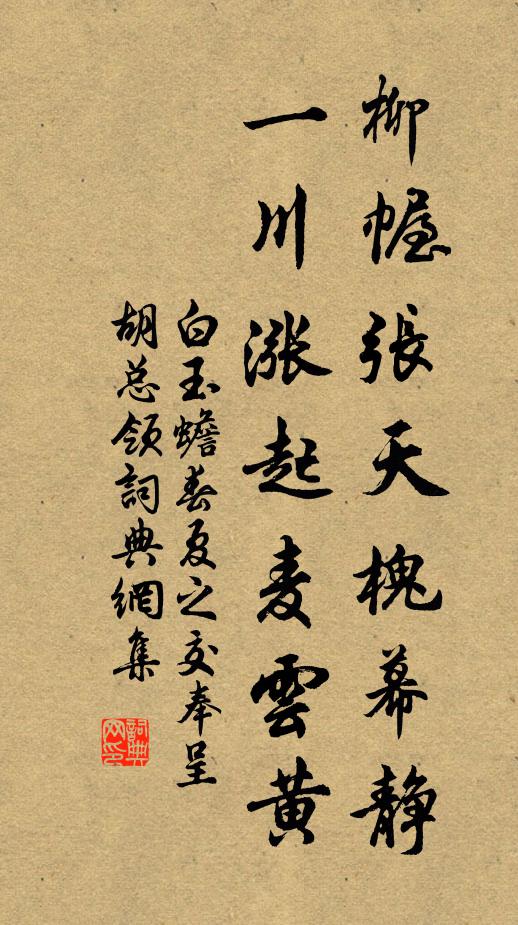 柳幄張天槐幕静
一川漲起麦雲黄
白玉蟾春夏之交奉呈
胡总領詞典網集
詞典网印